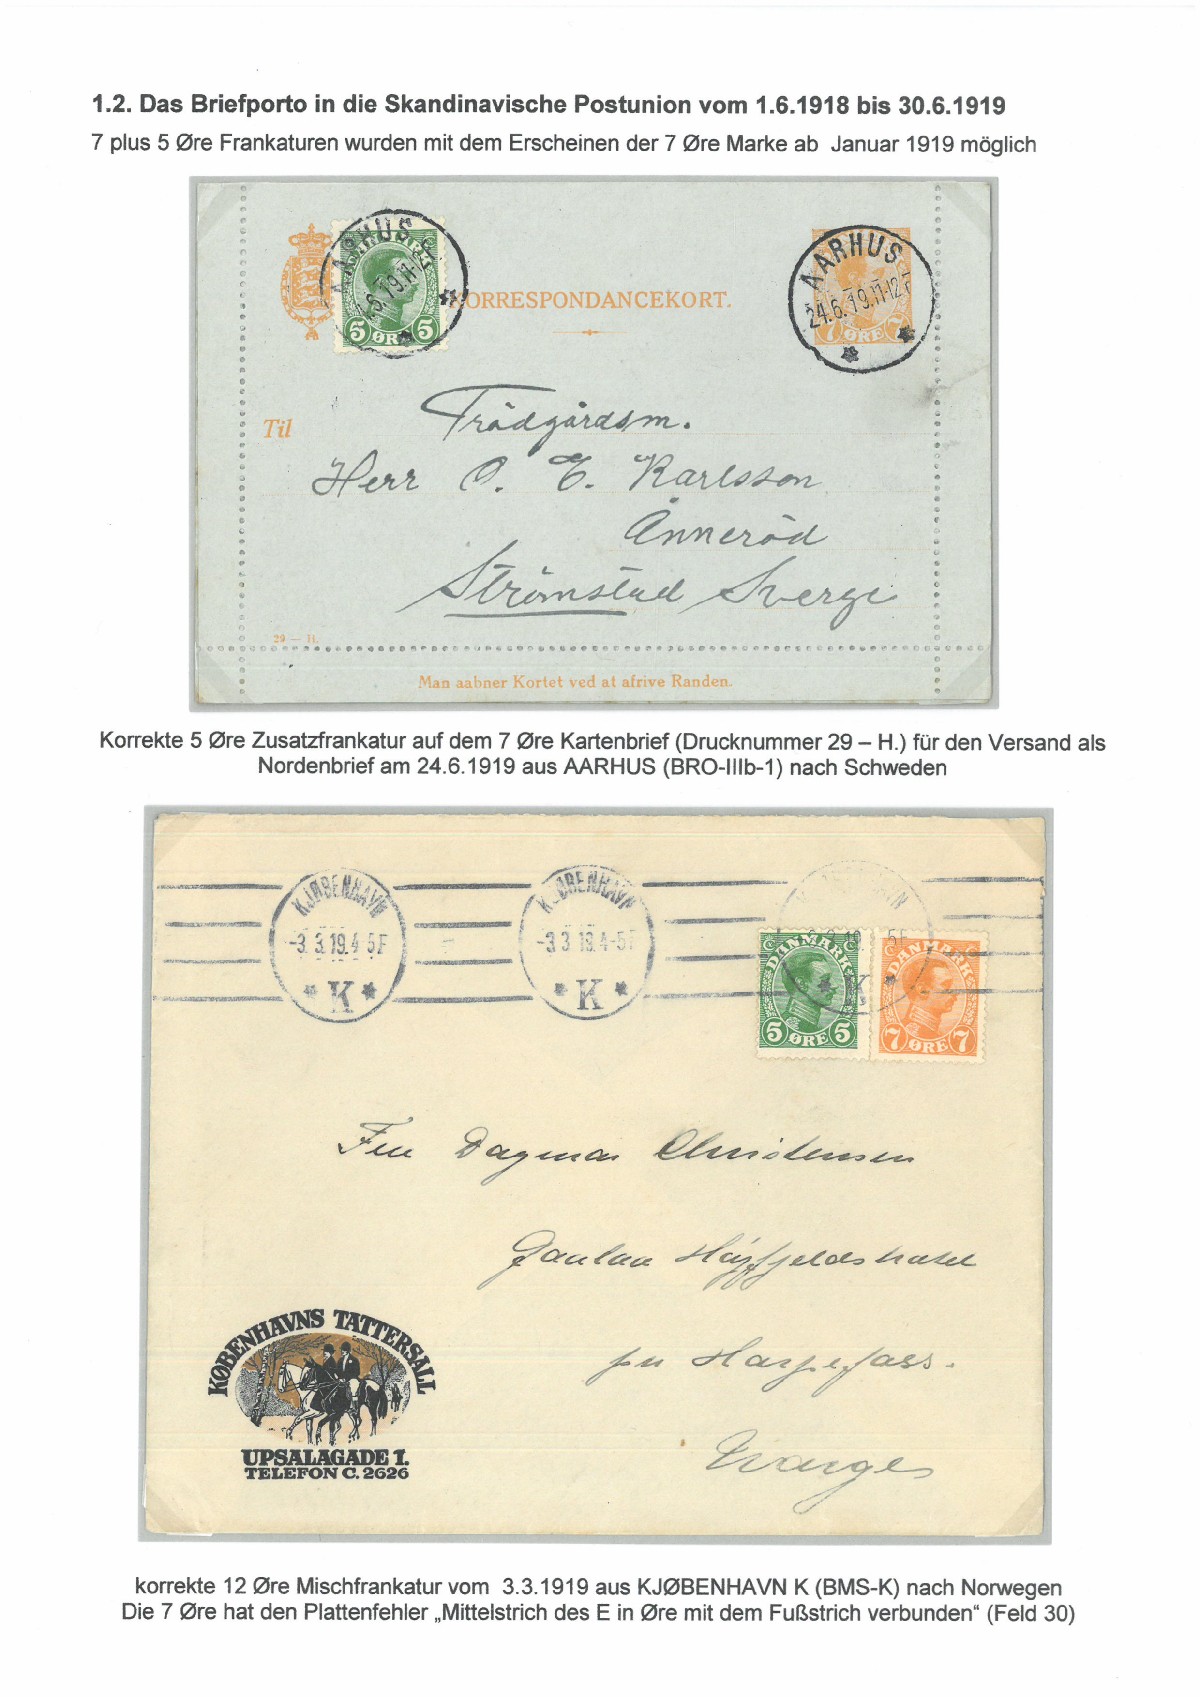 1.2. Das Briefporto in die Skandinavische Postunion vom 1.6.1918 bis 30.6.1919
7 plus 5 Øre Frankaturen wurden mit dem Erscheinen der 7 Øre Marke ab Januar 1919 möglich
AARHUS
6.19.11-
5 ØRE 5
KORRESPONDANCEKORT.
AARHUS
24.6.19.11-12F
7 ØRE 7
Til
Trädgårdsm.
Herr O. E. Karlsson
Änneröd
Strömstad Sverge
29 – H.
Man aabner Kortet ved at afrive Randen.
Korrekte 5 Øre Zusatzfrankatur auf dem 7 Øre Kartenbrief (Drucknummer 29 – H.) für den Versand als
Nordenbrief am 24.6.1919 aus AARHUS (BRO-IIIb-1) nach Schweden
KJØBENHAVN
-3.3.19.4-5F
* K *
KJØBENHAVN
-3.3.19.4-5F
* K *
KJØBENHAVN
3.19. 5F
* K *
DANMARK
5 ØRE 5
DANMARK
7 ØRE 7
Dagmar Christensen
Højfjeldshotel
pr
Norge
KØBENHAVNS TATTERSALL
UPSALAGADE 1.
TELEFON C. 2626
korrekte 12 Øre Mischfrankatur vom 3.3.1919 aus KJØBENHAVN K (BMS-K) nach Norwegen
Die 7 Øre hat den Plattenfehler „Mittelstrich des E in Øre mit dem Fußstrich verbunden“ (Feld 30)